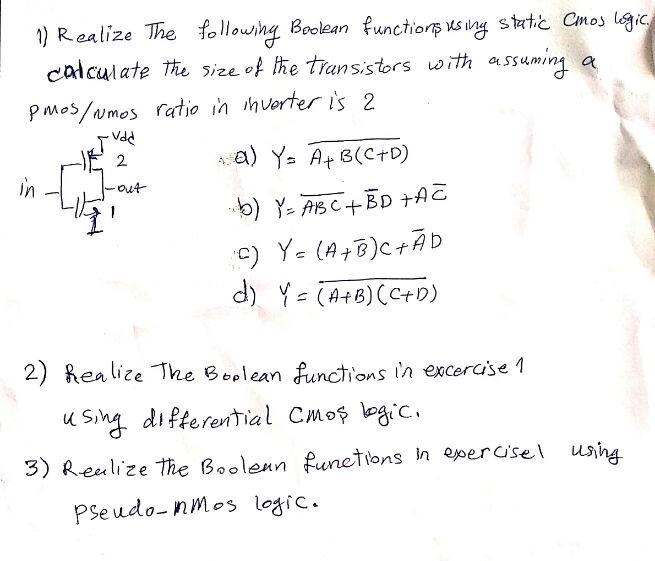 1) Realize The following Boolean functions using static Cmos logic.
calculate the size of the transistors with assuming a
pmos/Nmos ratio in inverter is 2
Vdd
2
in
out
1
a) Y= \overline{A+B(C+D)}
b) Y= \overline{ABC}+B̅D+AC̅
c) Y= (A+B̅)C+A̅D
d) Y= \overline{(A+B)(C+D)}
2) Realize The Boolean functions in excercise 1
using differential Cmos logic.
3) Reelize the Boolean functions in exercise1 using
Pseudo-nmos logic.